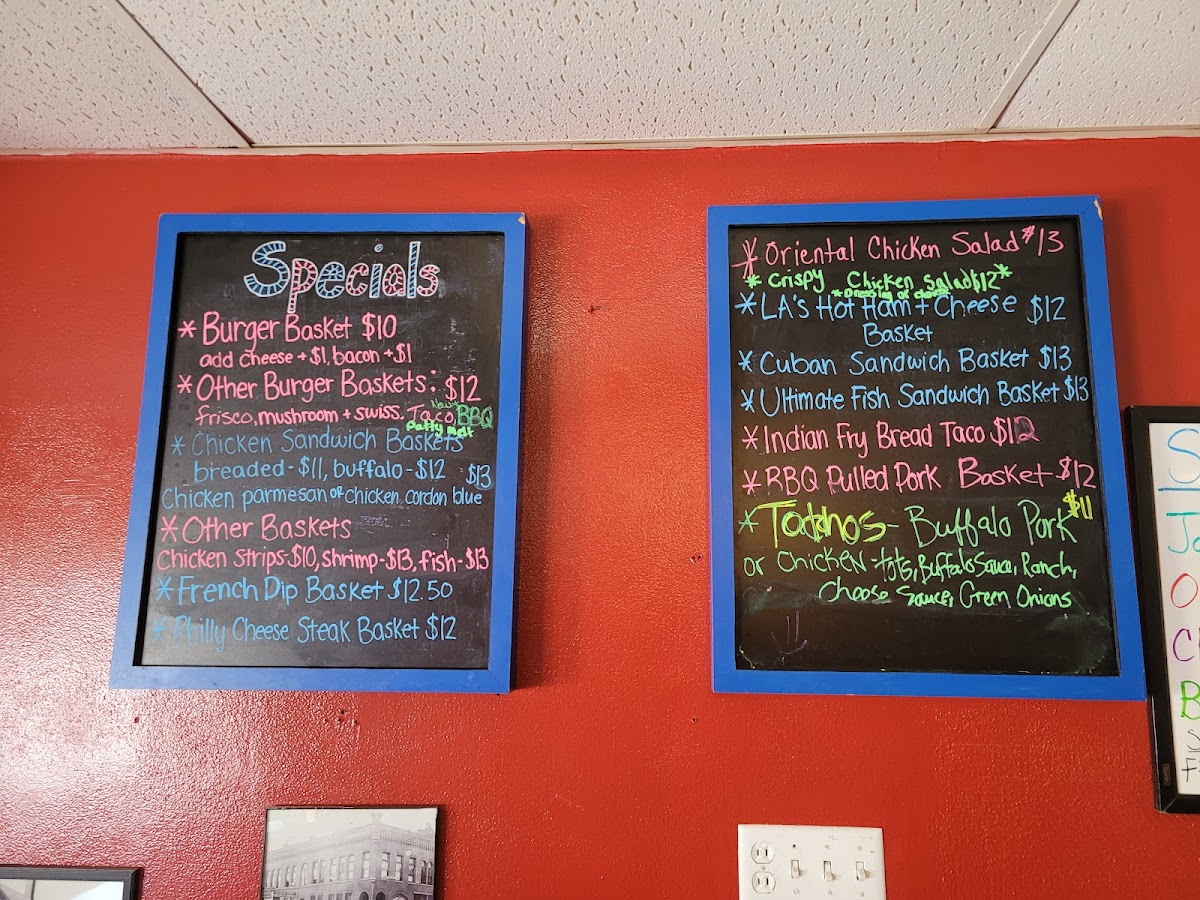 Specials
* Burger Basket $10
add cheese + $1, bacon + $1
* Other Burger Baskets: $12
frisco, mushroom + swiss. Taco, BBQ
New
Patty melt
* Chicken Sandwich Baskets
breaded - $11, buffalo - $12
$13
Chicken parmesan or chicken cordon blue
* Other Baskets
Chicken strips-$10, shrimp-$13, fish-$13
* French Dip Basket $12.50
* Philly Cheese Steak Basket $12
* Oriental Chicken Salad $13
* Crispy Chicken Salad $12*
* Dressing of choice
* LA's Hot Ham + Cheese $12
Basket
* Cuban Sandwich Basket $13
* Ultimate Fish Sandwich Basket $13
* Indian Fry Bread Taco $12
* BBQ Pulled Pork Basket - $12
* Totchos - Buffalo Pork $11
or Chicken - tots, Buffalo Sauce, Ranch,
Cheese Sauce, Green Onions
S
J
O
C
B